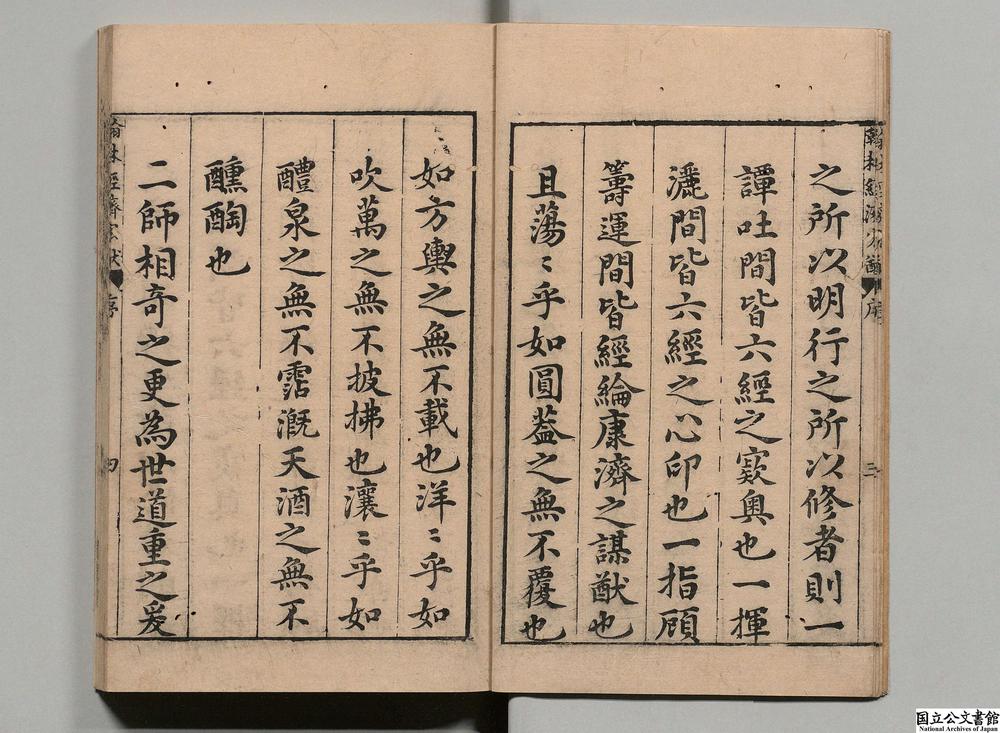 之所以明行之所以修者則一
譚吐間皆六經之窾奧也一揮
灑間皆六經之心印也一指顧
籌運間皆經綸康濟之謀猷也
且蕩〻乎如圓葢之無不覆也
三
如方輿之無不載也洋〻乎如
吹萬之無不披拂也瀼〻乎如
醴泉之無不霑溉天酒之無不
醺陶也
二師相奇之更為世道重之爰
序
四
国立公文書館
National Archives of Japan